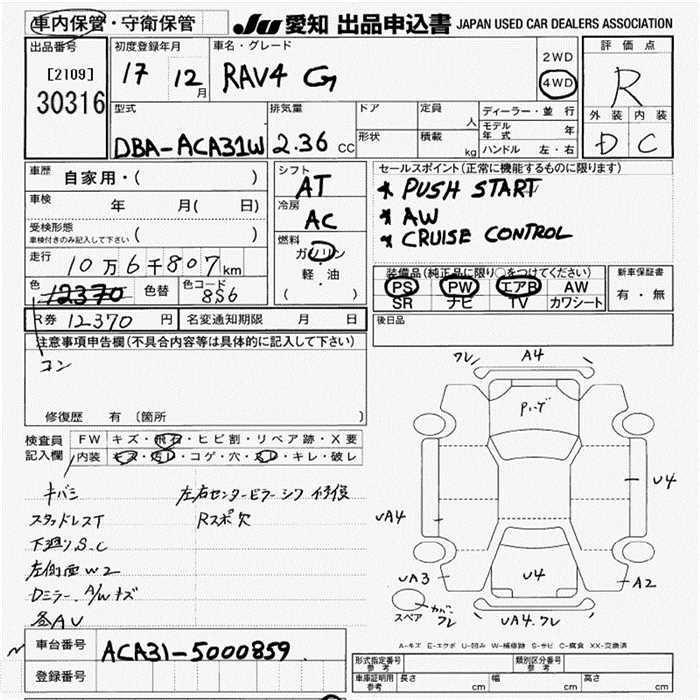 車内保管・守衛保管 JU 愛知 出品申込書 JAPAN USED CAR DEALERS ASSOCIATION
出品番号 [2109] 30316
初度登録年月 17 12月
車名・グレード RAV4 G
2WD
4WD
評価点 R
外装 内装
D C
型式 DBA-ACA31W
排気量 2.36 CC
ドア
形状
定員 人
積載 kg
ディーラー・並行
モデル年式 年
ハンドル 左・右
車歴 自家用・( )
車検 年 月( 日)
受検形態 車検付きのみ記入して下さい ( )
走行 10万6千807km
色 12370 色替 色コード 8S6
シフト AT
冷房 AC
燃料 ガソリン・軽・油
( )
セールスポイント(正常に機能するものに限ります)
* PUSH START
* AW
* CRUISE CONTROL
装備品(純正品に限り○をつけてください)
PS PW エアB AW
SR ナビ TV カワシート
新車保証書
有・無
R券 12370 円 名変通知期限 月 日
後日品
注意事項申告欄(不具合内容等は具体的に記入して下さい)
コン
修復歴 有 (箇所 )
検査員記入欄
FW キズ・飛石・ヒビ割・リペア跡・X要
内装 キズ・汚レ・コゲ・穴・スレ・キレ・破レ
キバミ
スタッドレスT
下廻りS.C
左側面W2
Dミラー、A/Wキズ
各AU
左右センターピラー シワ 修復
Rスポ欠
フレ A4
Pハーゲ
U4
UA4
UA3
U4
A2
スペア
カバーフレ
UA4.フレ
A-キズ E-エクボ U-凹み W-補修跡 S-サビ C-腐食 XX-交換済
車台番号 ACA31-5000859
登録番号
形式指定番号 参考
類別区分番号 参考
車庫証明用 参考 長さ cm 幅 cm 高さ cm